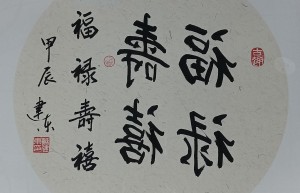 福禄
壽禧
福禄壽禧
甲辰 建东